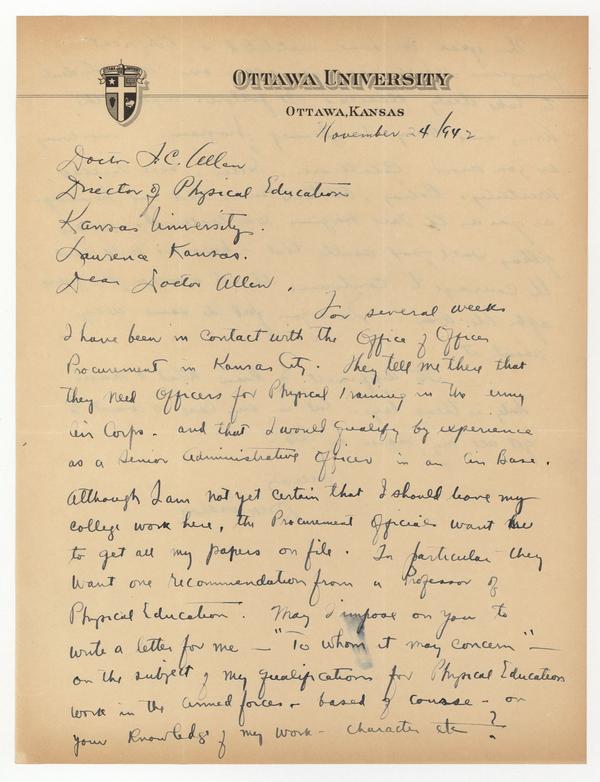 OTTAWA UNIVERSITY
OTTAWA, KANSAS
November 24/942
Doctor F.C. Allen
Director of Physical Education
Kansas University.
Laurence Kansas.
Dear Doctor Allen.
For several weeks
I have been in contact with the Office of Officer
Procurement in Kansas City. They tell me there that
they need Officers for Physical Training in the army
Air Corps. and that I would qualify by experience
as a Senior Administrative Officer in an Air Base.
Although I am not yet certain that I should leave my
college work here, the Procurement Officials want me
to get all my papers on file. In particular they
want one recommendation from a Professor of
Physical Education. May I impose on you to
write a letter for me — "To whom it may concern" —
on the subject of my qualifications for Physical Education
work in the armed forces - based of course - on
your knowledge of my work - character etc ?